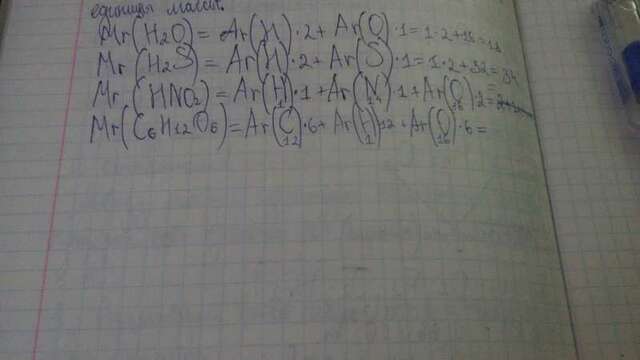 единицы массы.
Mr(H2O) = Ar(H)·2+ Ar(O)·1=1·2+16=18
Mr(H2S) = Ar(H)·2+ Ar(S)·1=1·2+32=34
Mr(HNO2)=Ar(H)·1+Ar(N)·1+Ar(O)·2=
1 14 16
Mr(C6H12O6)=Ar(C)·6+Ar(H)12+Ar(O)·6=
12 1 16